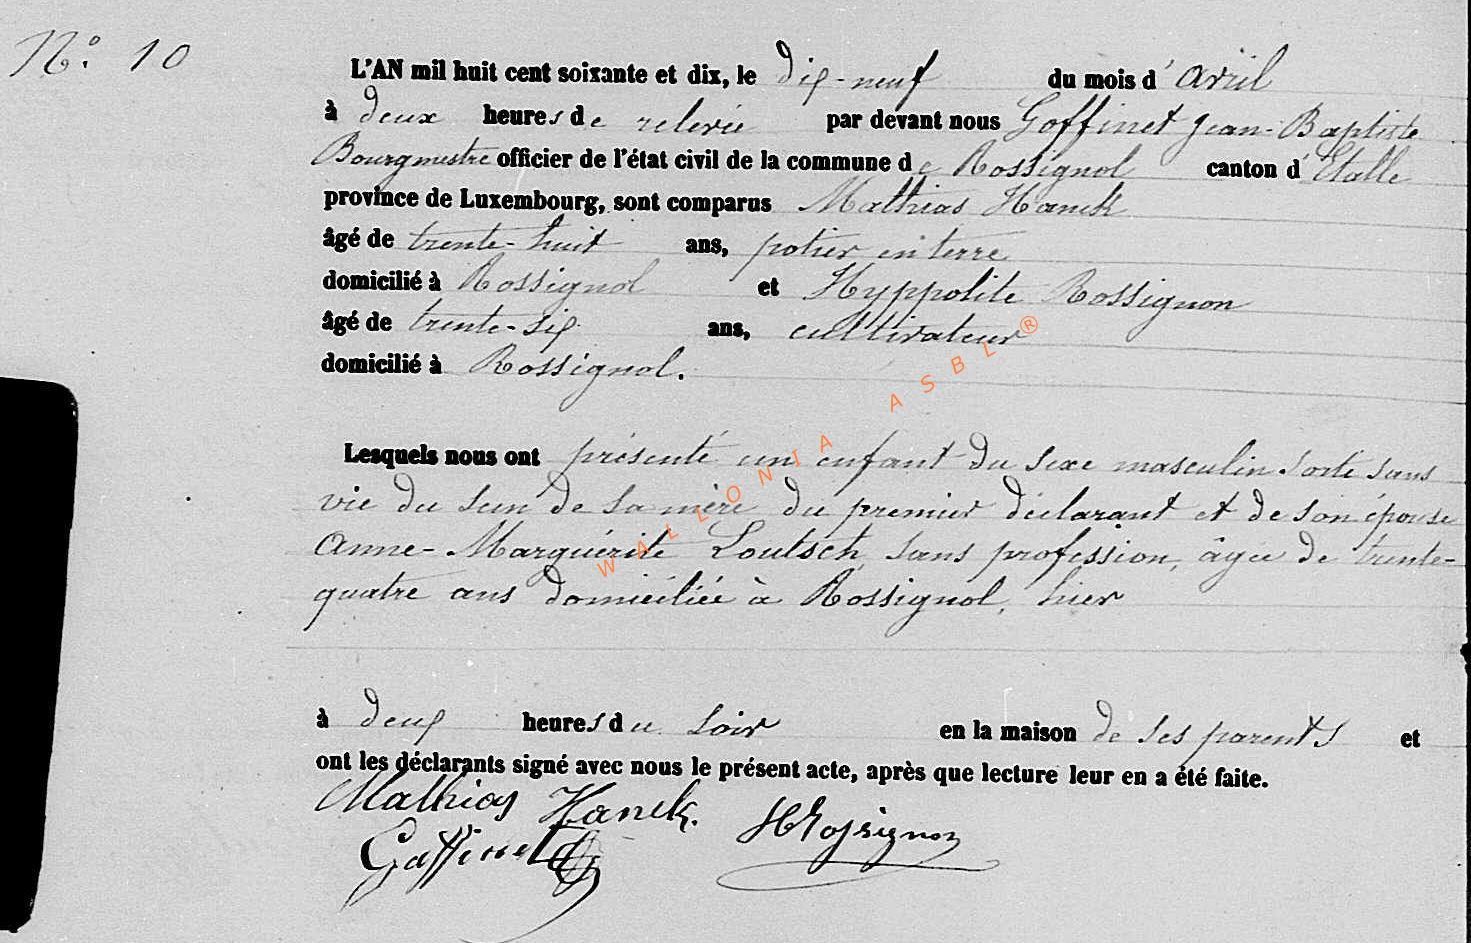 N° 10
L'AN mil huit cent soixante et dix, le dix-neuf du mois d'avril
à deux heures de relevée par devant nous Goffinet Jean-Baptiste
Bourgmestre officier de l'état civil de la commune de Rossignol canton d'Etalle
province de Luxembourg, sont comparus Mathias Hanck
âgé de trente-huit ans, potier en terre
domicilié à Rossignol et Hyppolite Rossignon
âgé de trente-six ans, cultivateur
domicilié à Rossignol.
Lesquels nous ont présenté un enfant du sexe masculin sorti sans
vie du sein de sa mère du premier déclarant et de son épouse
Anne-Marguérite Loutsch, sans profession, âgée de trente-
quatre ans domiciliée à Rossignol, hier
à deux heures du soir en la maison de ses parents et
ont les déclarants signé avec nous le présent acte, après que lecture leur en a été faite.
Mathias Hanck. HRossignon
Goffinet
WALLONIA ASBL ®